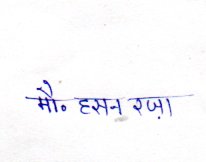 मौ० हसन रज़ा